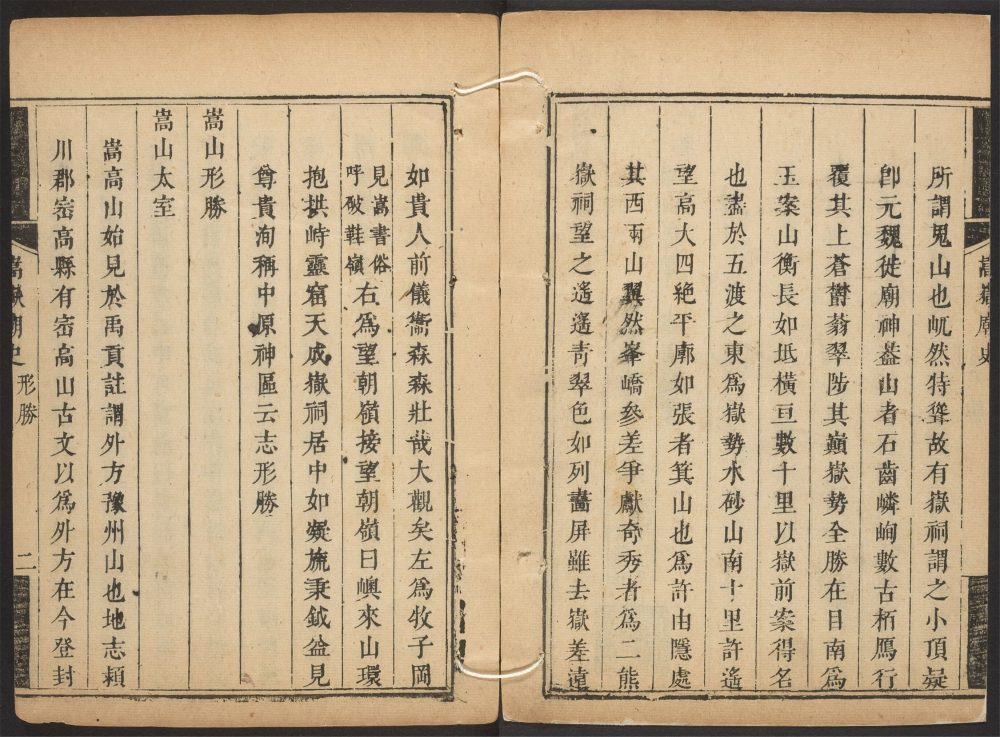 嵩嶽廟史
所謂鬼山也屼然特聳故有嶽祠謂之小頂疑
卽元魏徙廟神葢山者石齒嶙峋數古栢鴈行
覆其上蒼鬱蓊翠陟其巔嶽勢全勝在目南爲
玉案山衡長如坻橫亘數千里以嶽前案得名
也盡於五渡之東爲嶽勢水砂山南十里許遙
望高大四絶平廓如張者箕山也爲許由隱處
其西兩山翼然峯嶠參差爭獻奇秀者爲二熊
嶽祠望之遙遙靑翠色如列畵屏雖去嶽差遠
如貴人前儀衞森森壯哉大觀矣左爲牧子岡
見嵩書俗
呼破鞋嶺
右爲望朝嶺接望朝嶺曰嶼來山環
抱拱峙靈窟天成嶽祠居中如凝旒秉鉞益見
尊貴洵稱中原神區云志形勝
嵩山形勝
嵩山太室
嵩高山始見於禹貢註謂外方豫州山也地志潁
川郡崈高縣有崈高山古文以爲外方在今登封
嵩嶽廟史 形勝 二